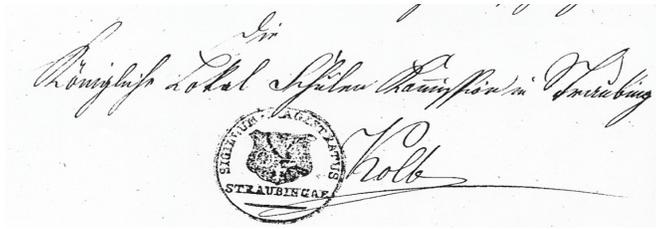 Die
Königliche Lokal Schulen Kommission in Straubing
SIGILLUM MAGISTRATUS
STRAUBINGAE
Kolb